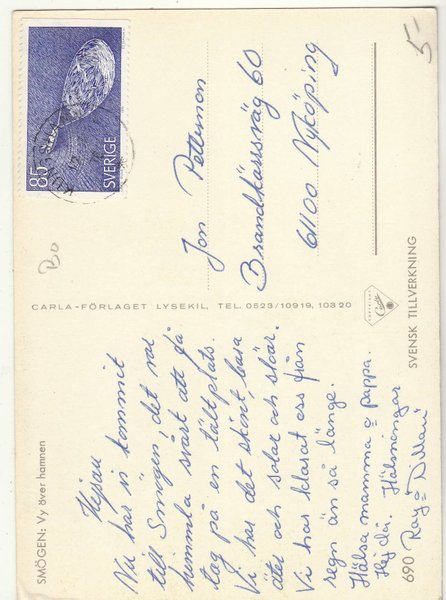 SMÖGEN: Vy över hamnen
Hejsan
Nu har vi kommit
till Smögen, det var
himmla svårt att få
tag på en tältplats.
Vi har det skönt bara
äter och solar och slöar.
Vi har klarat oss från
regn än så länge.
Hälsa mamma o pappa.
Hej då. Hälsningar
Roya o
690
CARLA-FÖRLAGET LYSEKIL, TEL. 0523/10919, 10320
85
SVERIGE
Jon Petterson
Brandkärrsväg 60
61100 Nyköping
SVENSK TILLVERKNING
5-